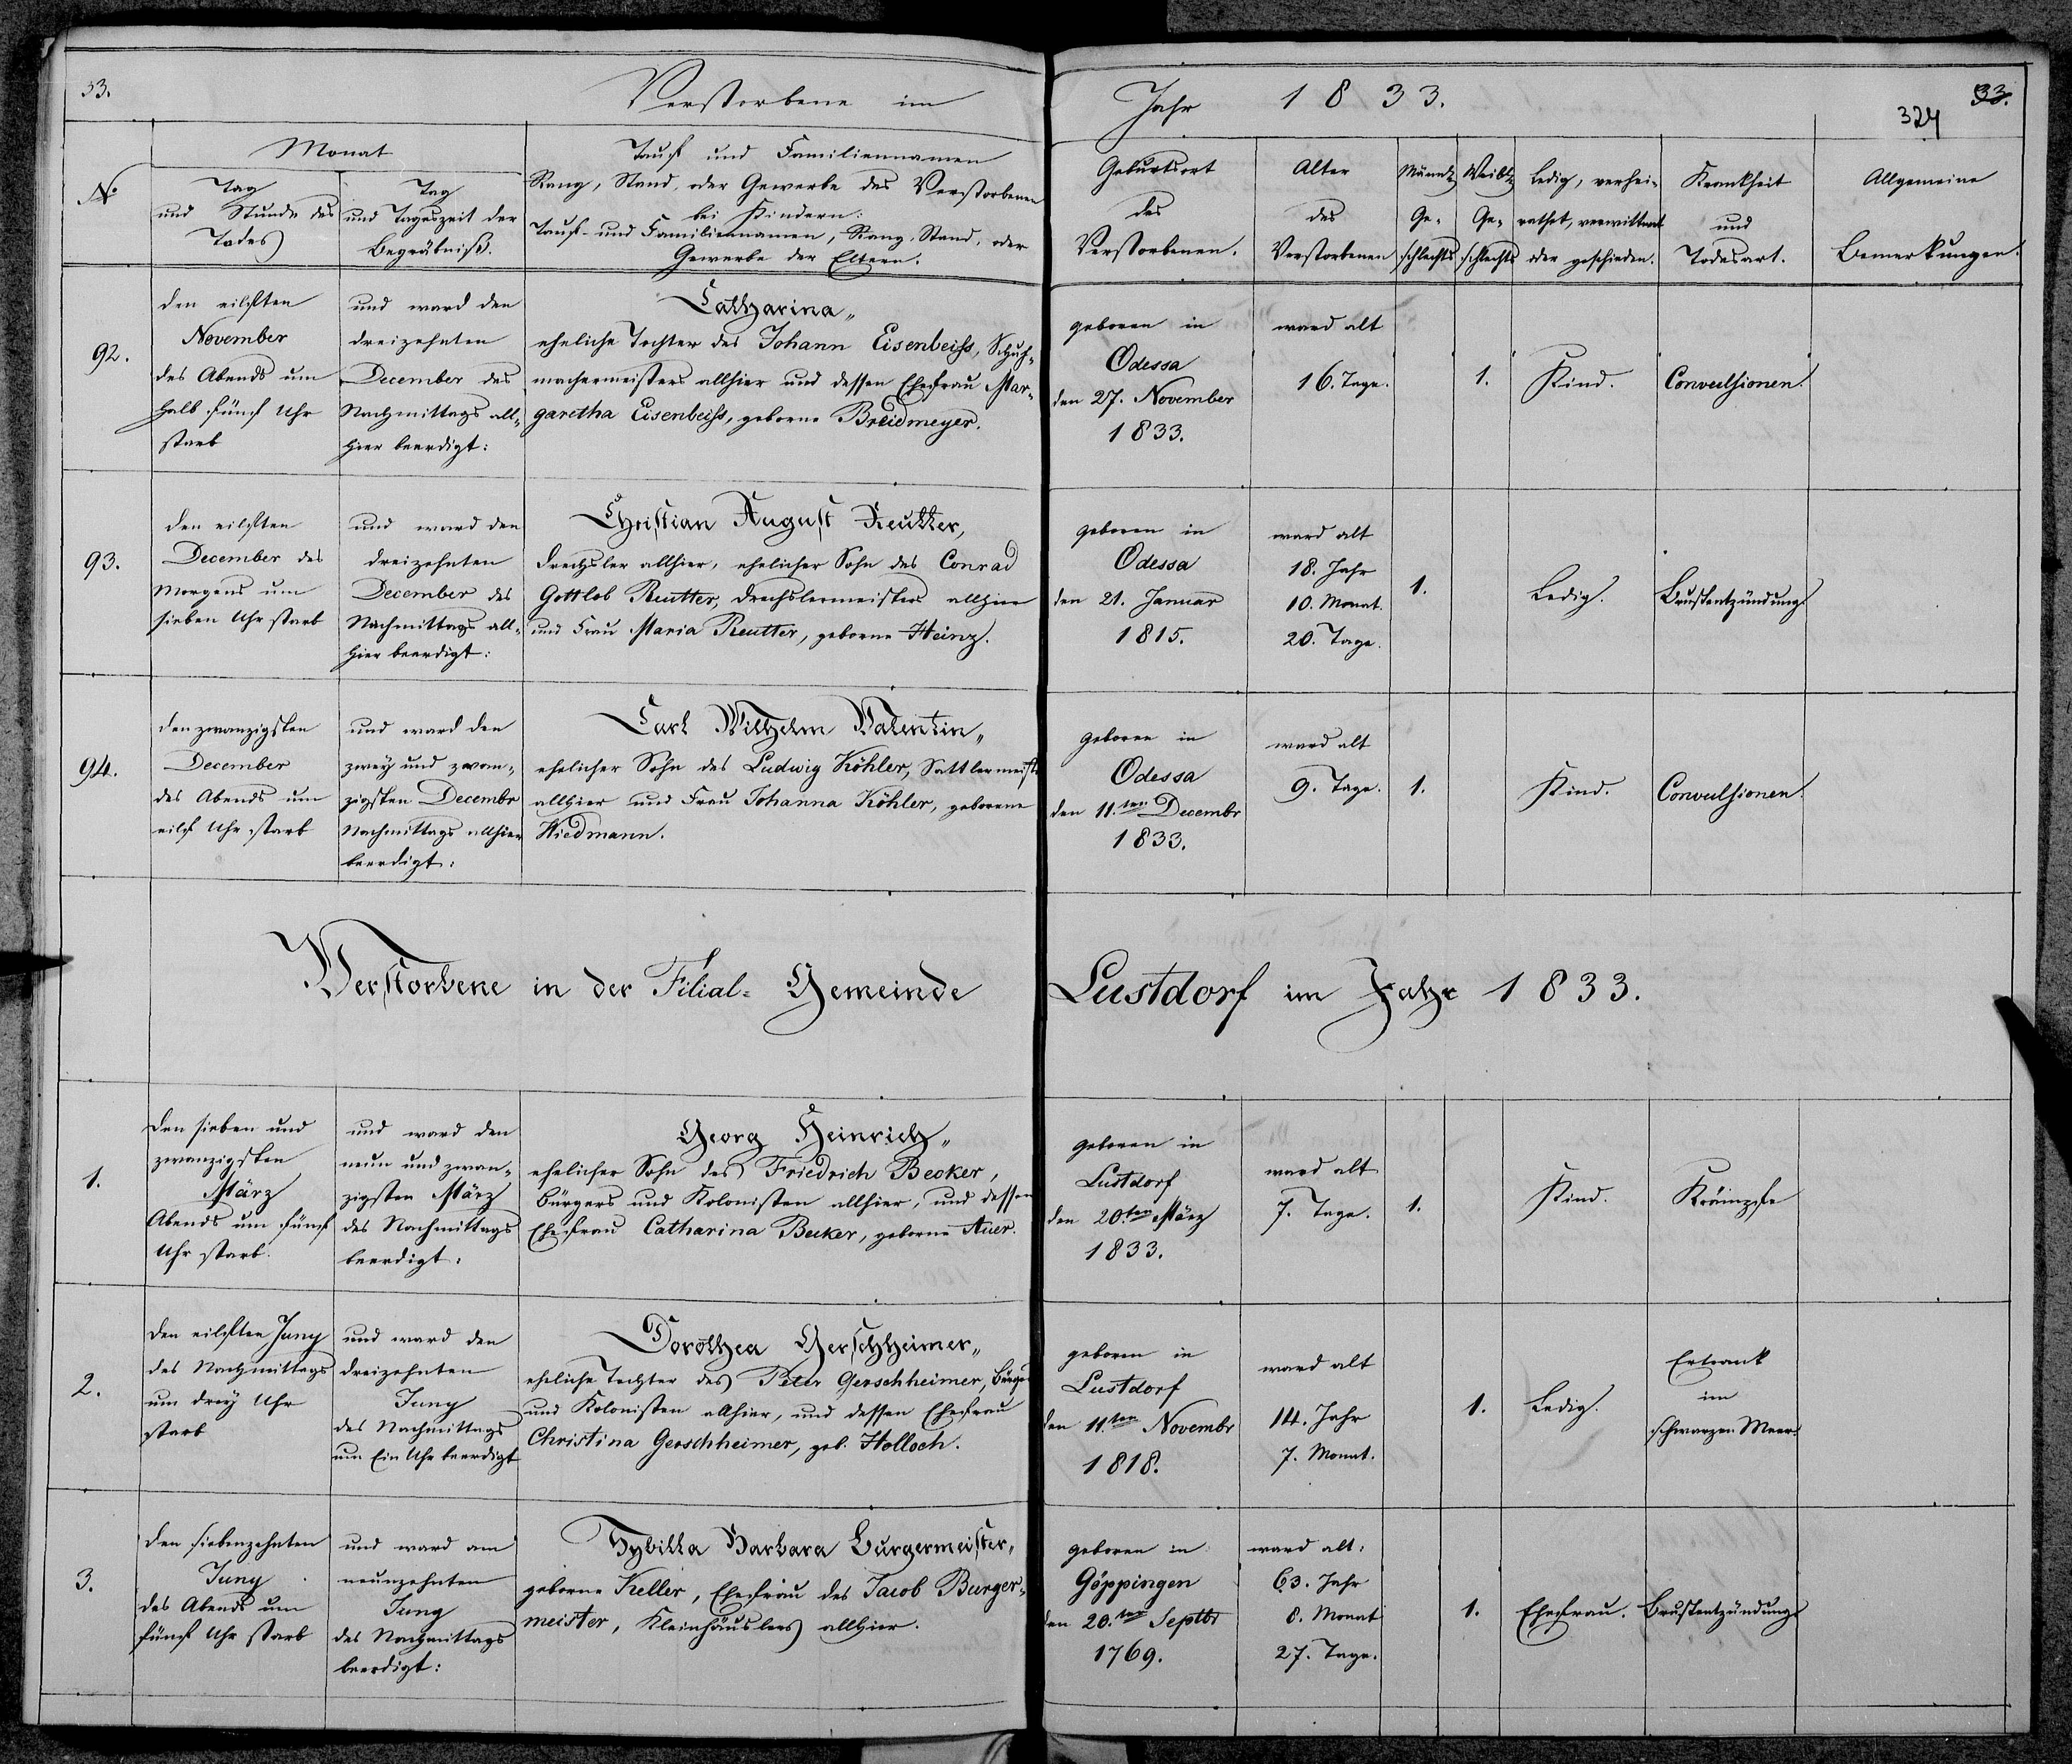 33.
Verstorbene im
Jahr 1833.
33.
324
No
Monat
Tag
und Stunde des
Todes
Tag
und Tageszeit der
Begräbniß.
Tauf und Familiennamen
Rang, Stand, oder Gewerbe des Verstorbenen
bei Kindern:
Tauf- und Familiennamen, Rang, Stand, oder
Gewerbe der Eltern.
Geburtsort
des
Verstorbenen.
Alter
des
Verstorbenen
Männl.
Ge-
schlechts
Weibl.
Ge-
schlechts
Ledig, verhei-
rathet, verwittwet
oder geschieden.
Krankheit
und
Todesart.
Allgemeine
Bemerkungen.
92.
den eilften
November
des Abends um
halb fünf Uhr
starb
und ward den
dreizehnten
December des
Nachmittags all-
hier beerdigt:
Catharina,
eheliche Tochter des Johann Eisenbeiss, Schuh-
machermeisters allhier und dessen Ehefrau Mar-
garetha Eisenbeiss, geborne Breidmeyer.
geboren in
Odessa
den 27. November
1833.
ward alt
16. Tage.
1.
Kind.
Convulsionen.
93.
den eilften
December des
Morgens um
sieben Uhr starb
und ward den
dreizehnten
December des
Nachmittags all-
hier beerdigt:
Christian August Reutter,
Drechsler allhier, ehelicher Sohn des Conrad
Gottlob Reutter, Drechslermeisters allhier
und Frau Maria Reutter, geborne Heinz.
geboren in
Odessa
den 21. Januar
1815.
ward alt
18. Jahr
10. Monat.
20. Tage.
1.
Ledig.
Brustentzündung
94.
den zwanzigsten
December
des Abends um
eilf Uhr starb
und ward den
zwey und zwan-
zigsten Decembr
Nachmittags allhier
beerdigt:
Carl Wilhelm Valentin,
ehelicher Sohn des Ludwig Köhler, Sattlermeist.
allhier und Frau Johanna Köhler, geborene
Wiedmann.
geboren in
Odessa
den 11.ten Decembr
1833.
ward alt
9. Tage.
1.
Kind.
Convulsionen.
Verstorbene in der Filial-Gemeinde Lustdorf im Jahr 1833.
1.
den sieben und
zwanzigsten
März
Abends um fünf
Uhr starb.
und ward den
neun und zwan-
zigsten März
des Nachmittags
beerdigt:
Georg Heinrich,
ehelicher Sohn des Friedrich Becker,
Bürgers und Kolonisten allhier, und dessen
Ehefrau Catharina Becker, geborne Auer.
geboren in
Lustdorf
den 20.ten März
1833.
ward alt
7. Tage.
1.
Kind.
Krämpfe
2.
den eilften Juny
des Nachmittags
um drey Uhr
starb
und ward den
dreizehnten
Juny
des Nachmittags
um Ein Uhr beerdigt
Dorothea Gerschheimer,
eheliche Tochter des Peter Gerschheimer, Bürger
und Kolonisten allhier, und dessen Ehefrau
Christina Gerschheimer, geb. Holloch.
geboren in
Lustdorf
den 11.ten Novembr
1818.
ward alt
14. Jahr
7. Monat.
1.
Ledig.
Ertrank
im
schwarzen Meer.
3.
den siebenzehnten
Juny
des Abends um
fünf Uhr starb
und ward am
neunzehnten
Juny
des Nachmittags
beerdigt:
Sybilla Barbara Burgermeister,
geborne Keller, Ehefrau des Jacob Burger-
meister, Kleinhäuslers allhier.
geboren in
Göppingen
den 20.ten Septbr
1769.
ward alt:
63. Jahr
8. Monat
27. Tage.
1.
Ehefrau.
Brustentzündung